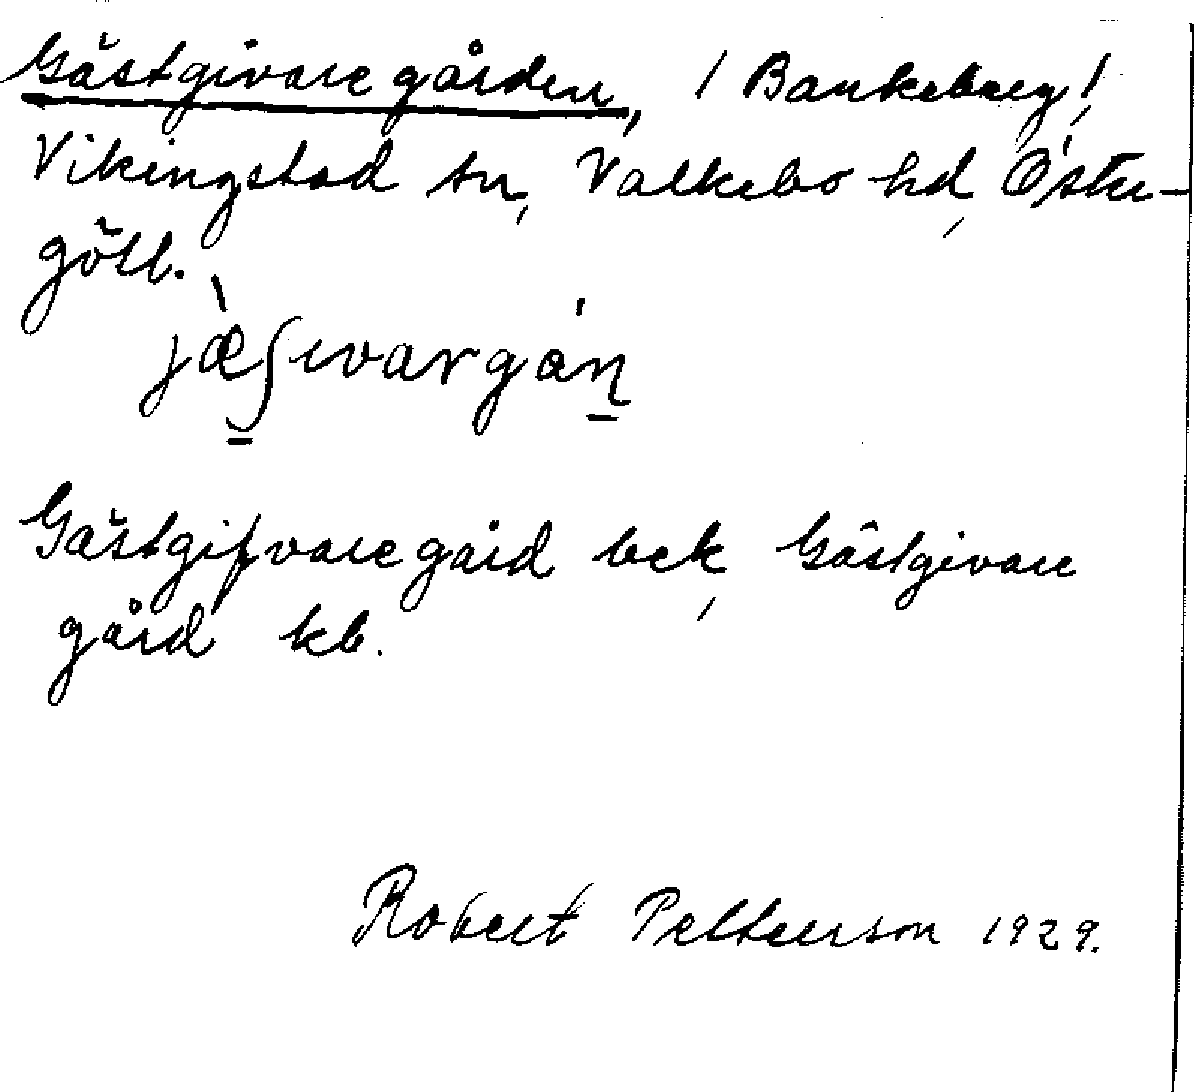 Gästgivaregården, / Bankeberg /,
Vikingstad sn, Valkebo hd, Öster-
götl.
jæʃıvargån
Gästgifvaregård bek, Gästgivare
gård kb.
Robert Petterson 1929.